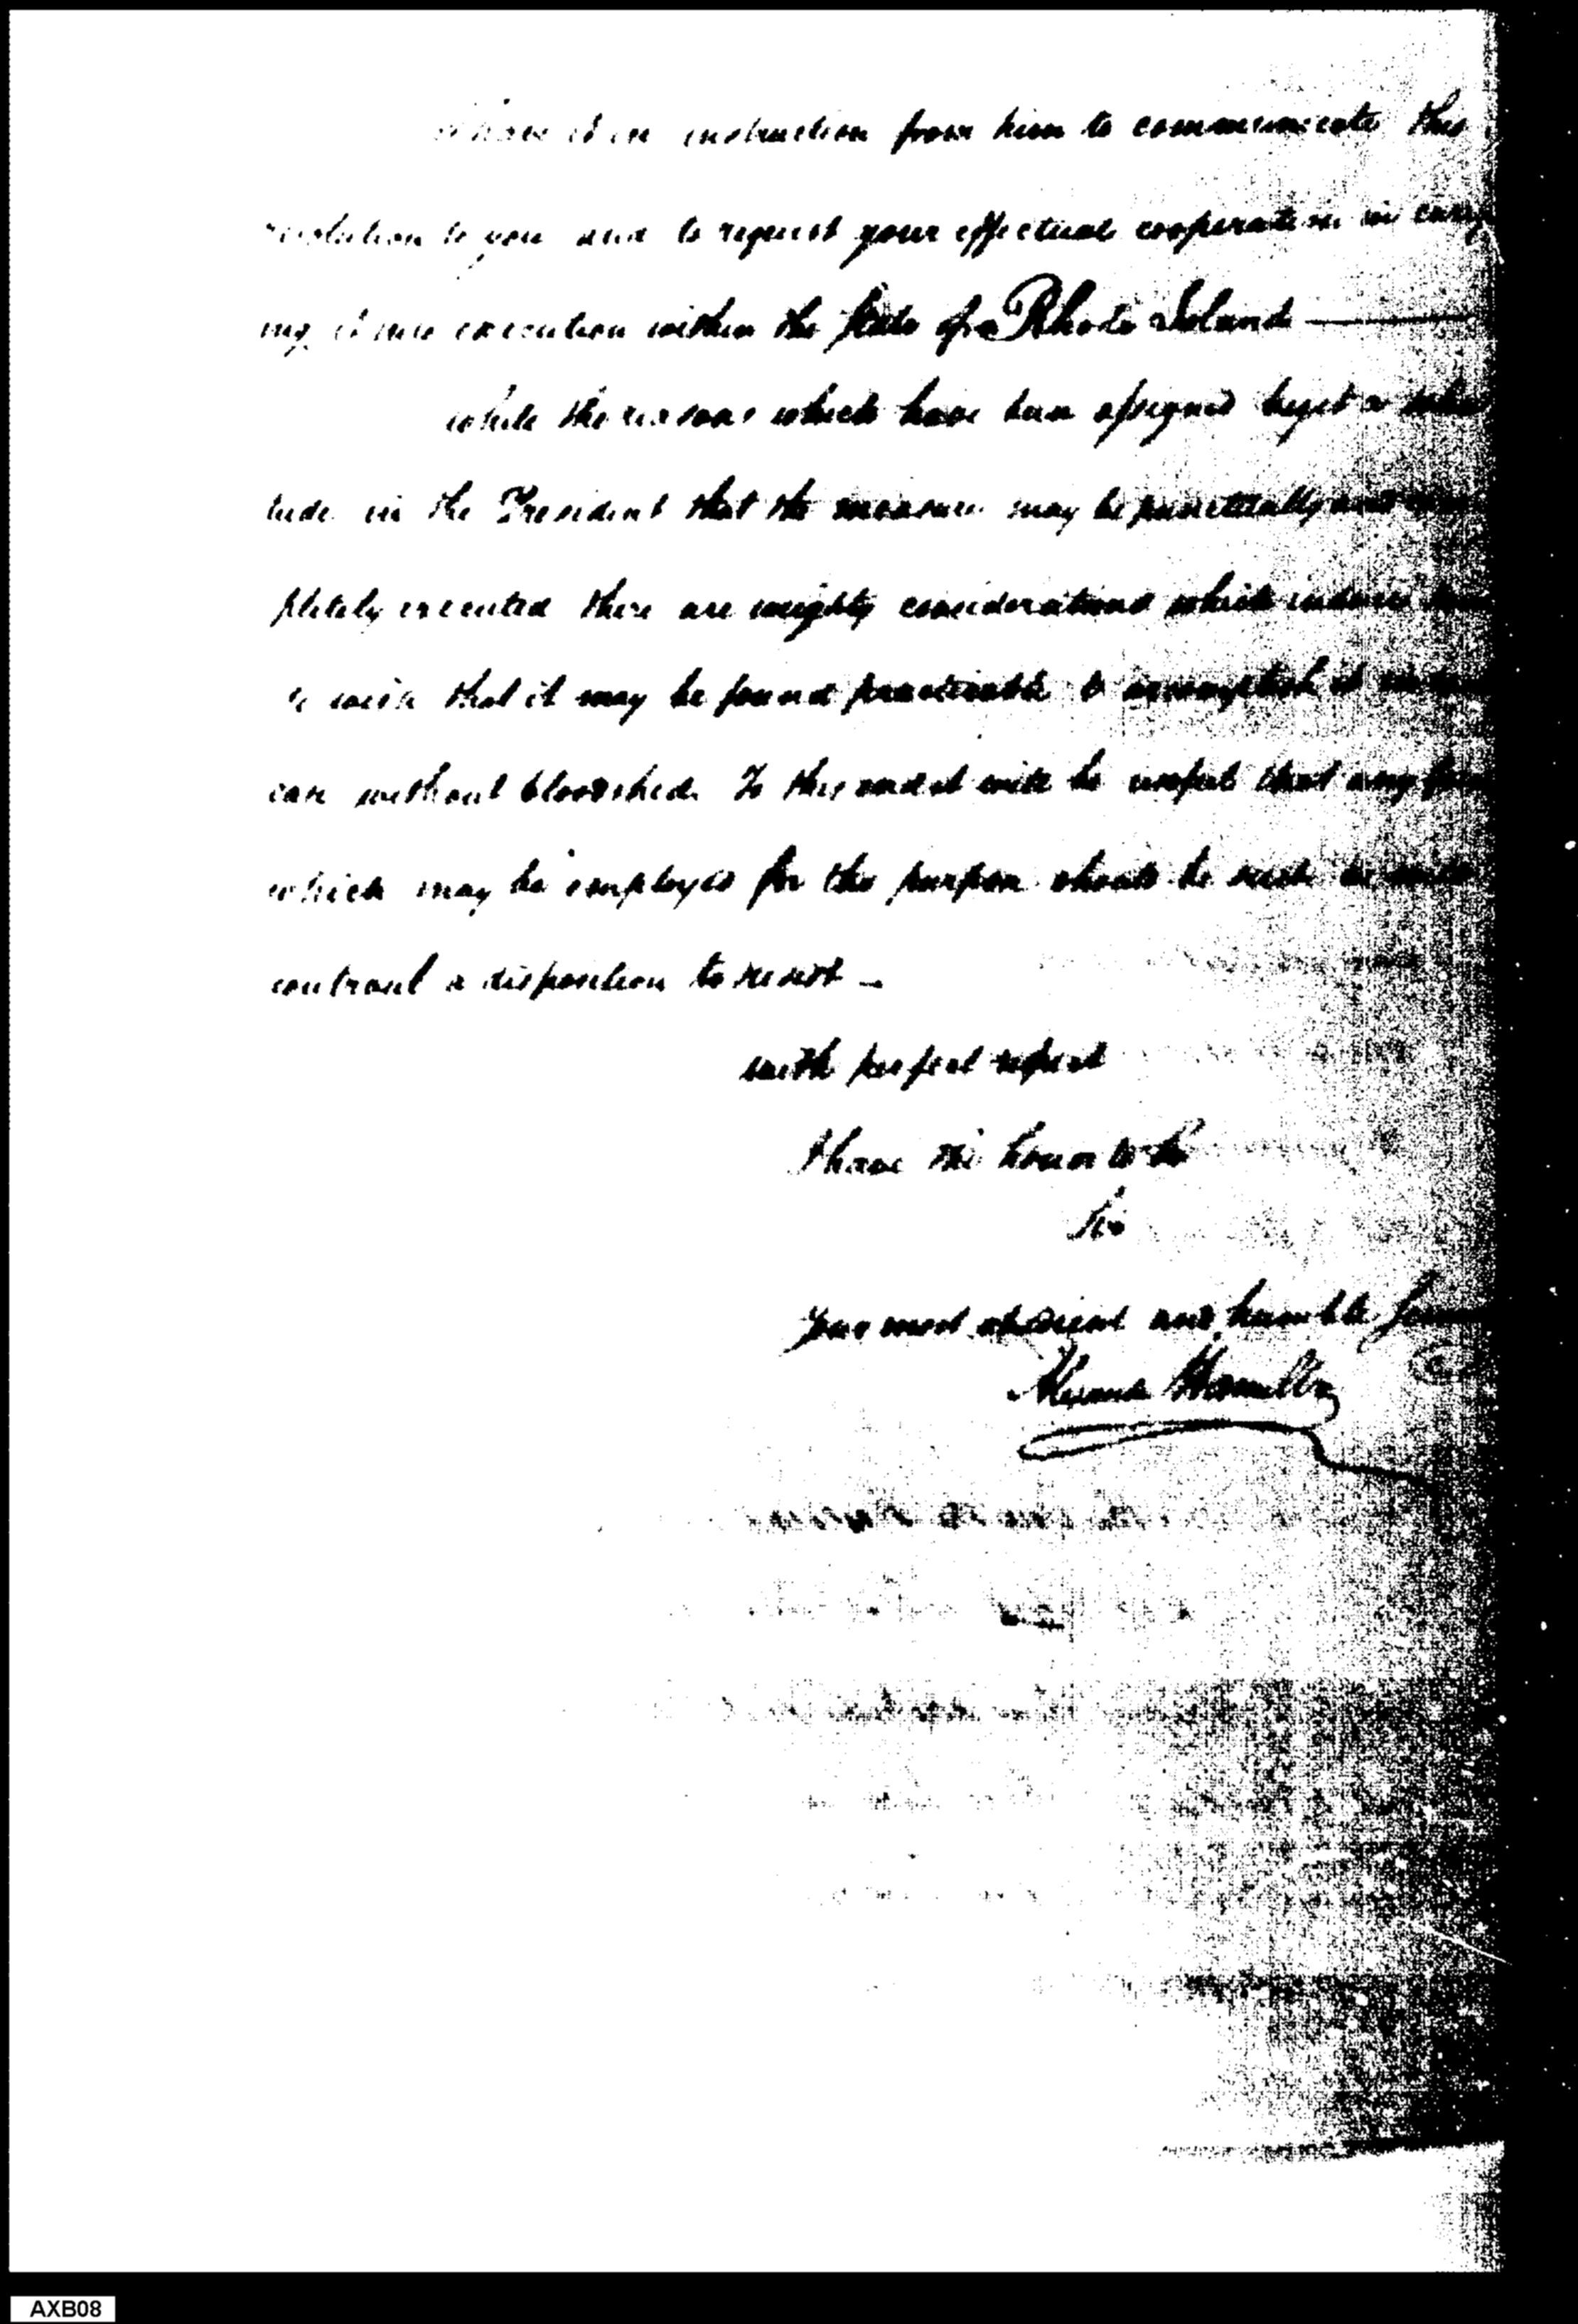 have it in instruction from him to communicate this
resolution to you and to request your effectual cooperation in carry
ing it into execution within the State of Rhode Island
while the reasons which have been assigned beget a
tude in the President that the measure may be punctually and
pletely executed there are weighty considerations which induce
to wish that it may be found practicable to accomplish it
case without bloodshed. To this end it will be that any
which may be employed for the purpose should be such as
controul a disposition to resist —
with perfect respect
I have the honor to be
Sir
Your most obedient and humble
Alexander Hamilton
AXB08